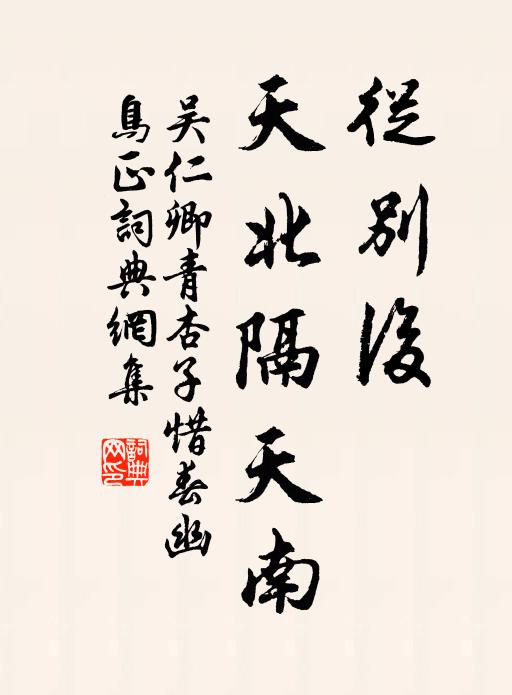 從別後
天北隔天南
吳仁卿青杏子惜春幽
鳥正詞典網集
詞典網印